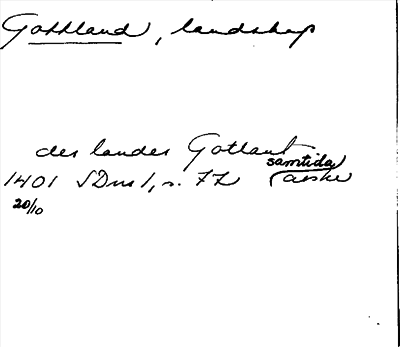 Gottland, landskap
des landes Gotlant
samtida
1401 SDns 1, s. 77 avskr
20/10